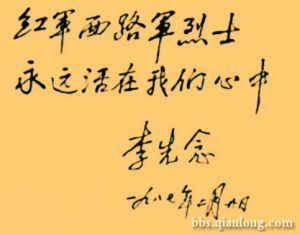 红军西路军烈士
永远活在我们心中
李先念
一九八七年二月廿日
bbs.qianlong.com